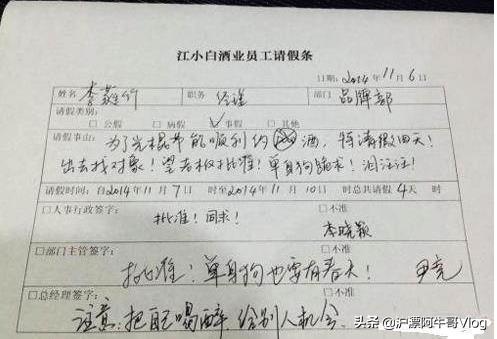 江小白酒业员工请假条
日期: 2014年11月6日
姓名 李 竹 职务 经理 部门 品牌部
请假类别:
□公假 □病假 ✓事假 □其他
请假事由: 为了光棍节能顺利约 酒,特请假四天!
出去找对象!望老板批准!单身狗跪求!泪汪汪!
请假时间:自2014年11月7日 时至2014年11月10日 时总共请假4天 时
□人事行政签字: □不准
批准!同求! 李晓颖
□部门主管签字: □不准
批准!单身狗也要有春天! 尹亮
□总经理签字: □不准
注意:把自己喝醉,给别人机会.
头条 @沪漂阿牛哥Vlog